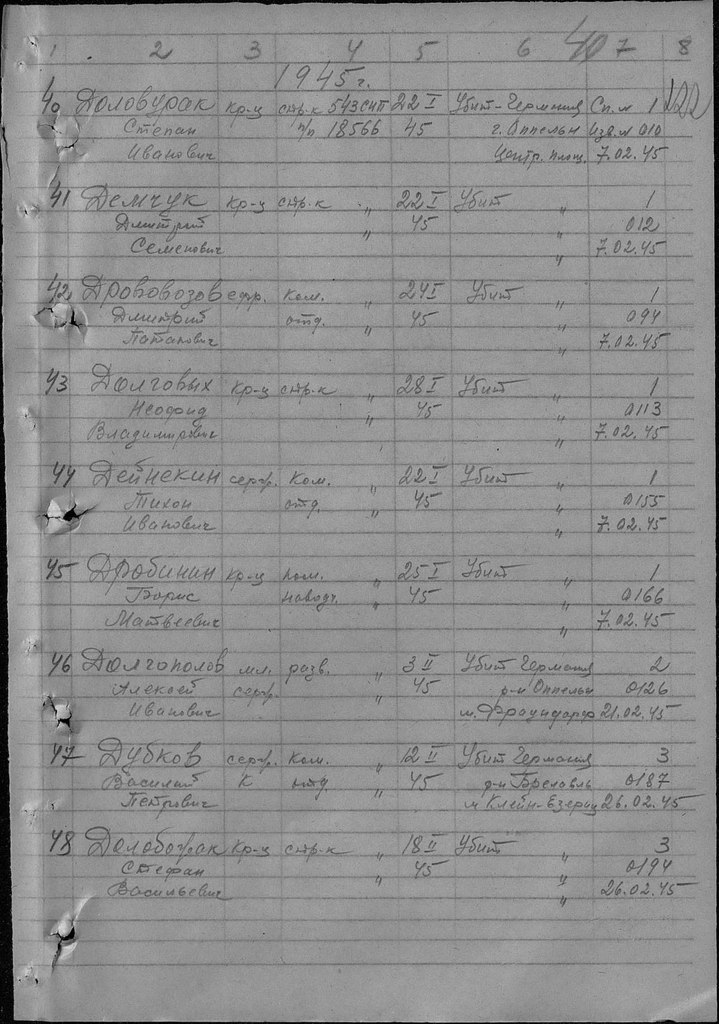 40
1 2 3 4 5 6 7 8
1945 г.
40 Доловурак кр-ц стр.к 543 СНП 22 I Убит-Германия Сп.м 1 122
Степан п/п 18566 45 г. Оппельн изв.м 010
Иванович Центр. площ. 7.02.45
41 Демчук кр-ц стр.к „ 22 I Убит „ 1
Дмитрий „ 45 012
Семенович „ 7.02.45
42 Дрововозов ефр. ком. „ 24 I Убит „ 1
Дмитрий отд. „ 45 094
Потапович „ 7.02.45
43 Долговых кр-ц стр-к „ 28 I Убит „ 1
Неофид „ 45 0113
Владимирович „ 7.02.45
44 Дейнекин серж. ком. „ 22 I Убит „ 1
Тихон отд. „ 45 0155
Иванович „ 7.02.45
45 Дробинин кр-ц пом. „ 25 I Убит „ 1
Борис наводч. „ 45 0166
Матвеевич „ 7.02.45
46 Долгополов мл. разв. „ 3 II Убит Германия 2
Алексей серж. „ 45 р-н Оппельн 0126
Иванович м. Фраундорф 21.02.45
47 Дубков серж. ком. „ 12 II Убит Германия 3
Василий К отд „ 45 р-н Бреславль 0187
Петрович м Клейн-Езериц 26.02.45
48 кр-ц стр-к „ 18 II Убит „ 3
Стефан „ 45 „ 0194
Васильевич „ 26.02.45